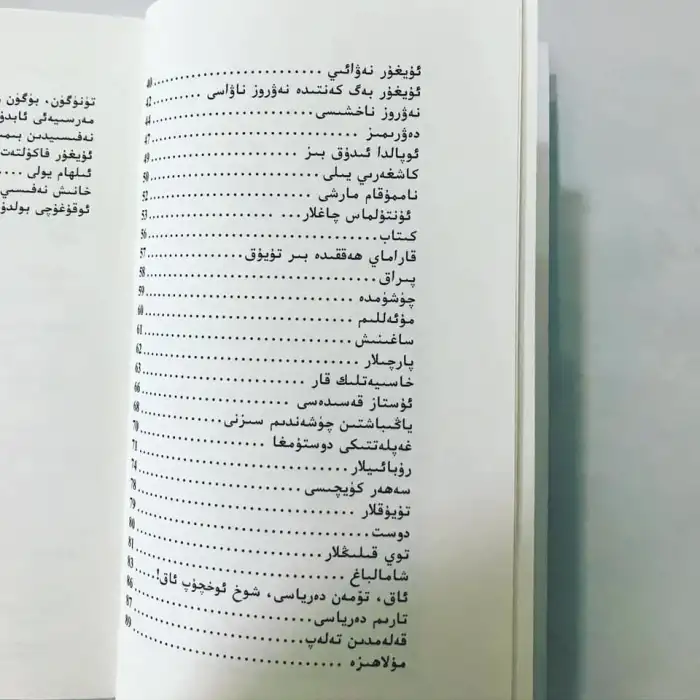 تۈنۈگۈن، بۈگۈن
مەرسىيەئى
نەفىسىدىن
ئۇيغۇر فاكۇلتەت
ئىلھام يولى ....
خانىش نەفىسى
ئوقۇغۇچى بولدۇ
ئۇيغۇر نەۋائىي ........................ 40
ئۇيغۇر بەگ كەنتىدە نەۋروز ناۋاسى ........ 42
نەۋروز ناخشىسى ........................ 44
دەۋرىمىز ........................ 47
ئوپالدا ئىدۇق بىز ........................ 49
كاشغەرىي يىلى ........................ 50
نامۇقام مارشى ........................ 52
ئۇنتۇلماس چاغلار ........................ 53
كىتاب ........................ 56
قاراماي ھەققىدە بىر تۇيۇق ........................ 57
پىراق ........................ 58
چۈشۈمدە ........................ 59
مۇئەللىم ........................ 60
ساغىنىش ........................ 61
پارچىلار ........................ 62
خاسىيەتلىك قار ........................ 63
ئۇستاز قەسىدەسى ........................ 66
ياڭباشتىن چۈشەندىم سىزنى ........................ 68
غەپلەتتىكى دوستۇمغا ........................ 70
رۇبائىيلار ........................ 71
سەھەر كۈيچىسى ........................ 74
تۇيۇقلار ........................ 78
دوست ........................ 79
توي قىلىڭلار ........................ 80
شامالباغ ........................ 81
ئاق، تۈمەن دەرياسى، شوخ ئوخچۇپ ئاق! ........ 83
تارىم دەرياسى ........................ 86
قەلەمدىن تەلەپ ........................ 87
مۇلاھىزە ........................ 89